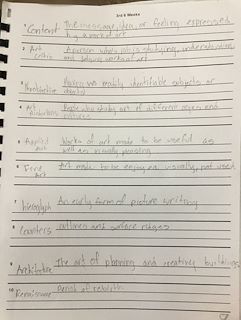 3rd 6 Weeks
1 Content The message, idea, or feeling expressed
by a work of art
2 Art A person whos job is studying, understanding
Critic and judging works of art
3 Having no easily identifiable subjects or
objects
4 Art People who study art of different ages and
cultures
5 Applied Works of art made to be useful as
Art well as visually pleasing
6 Fine Art made to be enjoyed visually, not used
Art
7 hieroglyph An early form of picture writing
8 Contours outlines and surface ridges
9 Architecture The art of planning and creatively buildings
10 Renaissance Period of rebirth